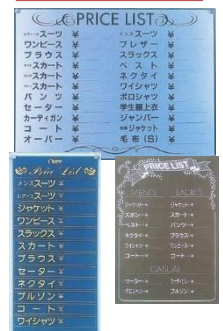 PRICE LIST
レディース スーツ ¥
ワンピース ¥
ブラウス ¥
スカート ¥
スカート ¥
パンツ ¥
セーター ¥
カーディガン ¥
コート ¥
オーバー ¥
メンズ スーツ ¥
ブレザー ¥
スラックス ¥
ベスト ¥
ネクタイ ¥
ワイシャツ ¥
ポロシャツ ¥
学生服上衣 ¥
ジャンパー ¥
ジャケット ¥
毛布(S) ¥
Price List
メンズ スーツ ¥
レディース スーツ ¥
ジャケット ¥
ワンピース ¥
スラックス ¥
スカート ¥
ブラウス ¥
セーター ¥
ネクタイ ¥
ブルゾン ¥
コート ¥
ワイシャツ ¥
PRICE LIST
MEN'S
ジャケット ¥
ズボン ¥
ベスト ¥
ネクタイ ¥
ワイシャツ ¥
コート ¥
LADIES'
ジャケット ¥
スカート ¥
パンツ ¥
ブラウス ¥
ワンピース ¥
コート ¥
CASUAL
セーター ¥
ブルゾン ¥